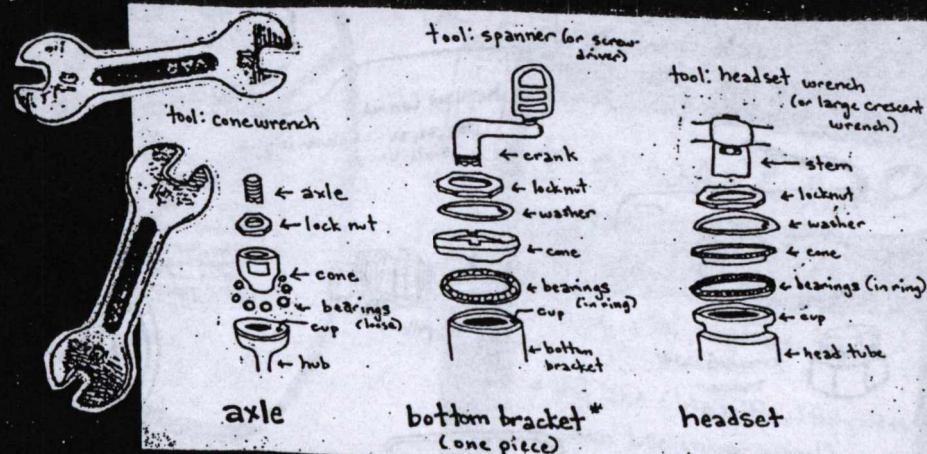 tool: cone wrench
← axle
← lock nut
← cone
← bearings
(loose)
cup
← hub
axle
tool: spanner (or screw-
driver)
← crank
← locknut
← washer
← cone
← bearings
(in ring)
cup
← bottom
bracket
bottom bracket*
(one piece)
tool: headset wrench
(or large crescent
wrench)
← stem
← locknut
← washer
← cone
← bearings (in ring)
← cup
← head tube
headset